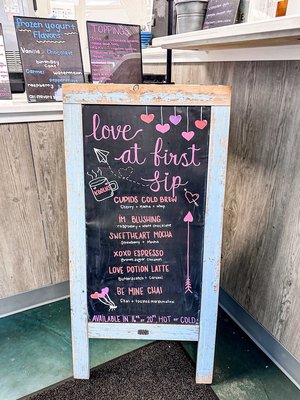 frozen yogurt
Flavors
Vanilla
Chocolate
Birthday Cake
Watermelon
TOPPINGS
love
at first
sip
CUPIDS COLD BREW
Cherry + Mocha + Whip
IM BLUSHING
raspberry + white chocolate
SWEETHEART MOCHA
Strawberry + Mocha
XOXO ESPRESSO
Brown sugar cinnamon
LOVE POTION LATTE
Butterscotch + Caramel
BE MINE CHAI
Chai + toasted marshmallow
AVAILABLE IN 16oz or 20oz, HOT or COLD